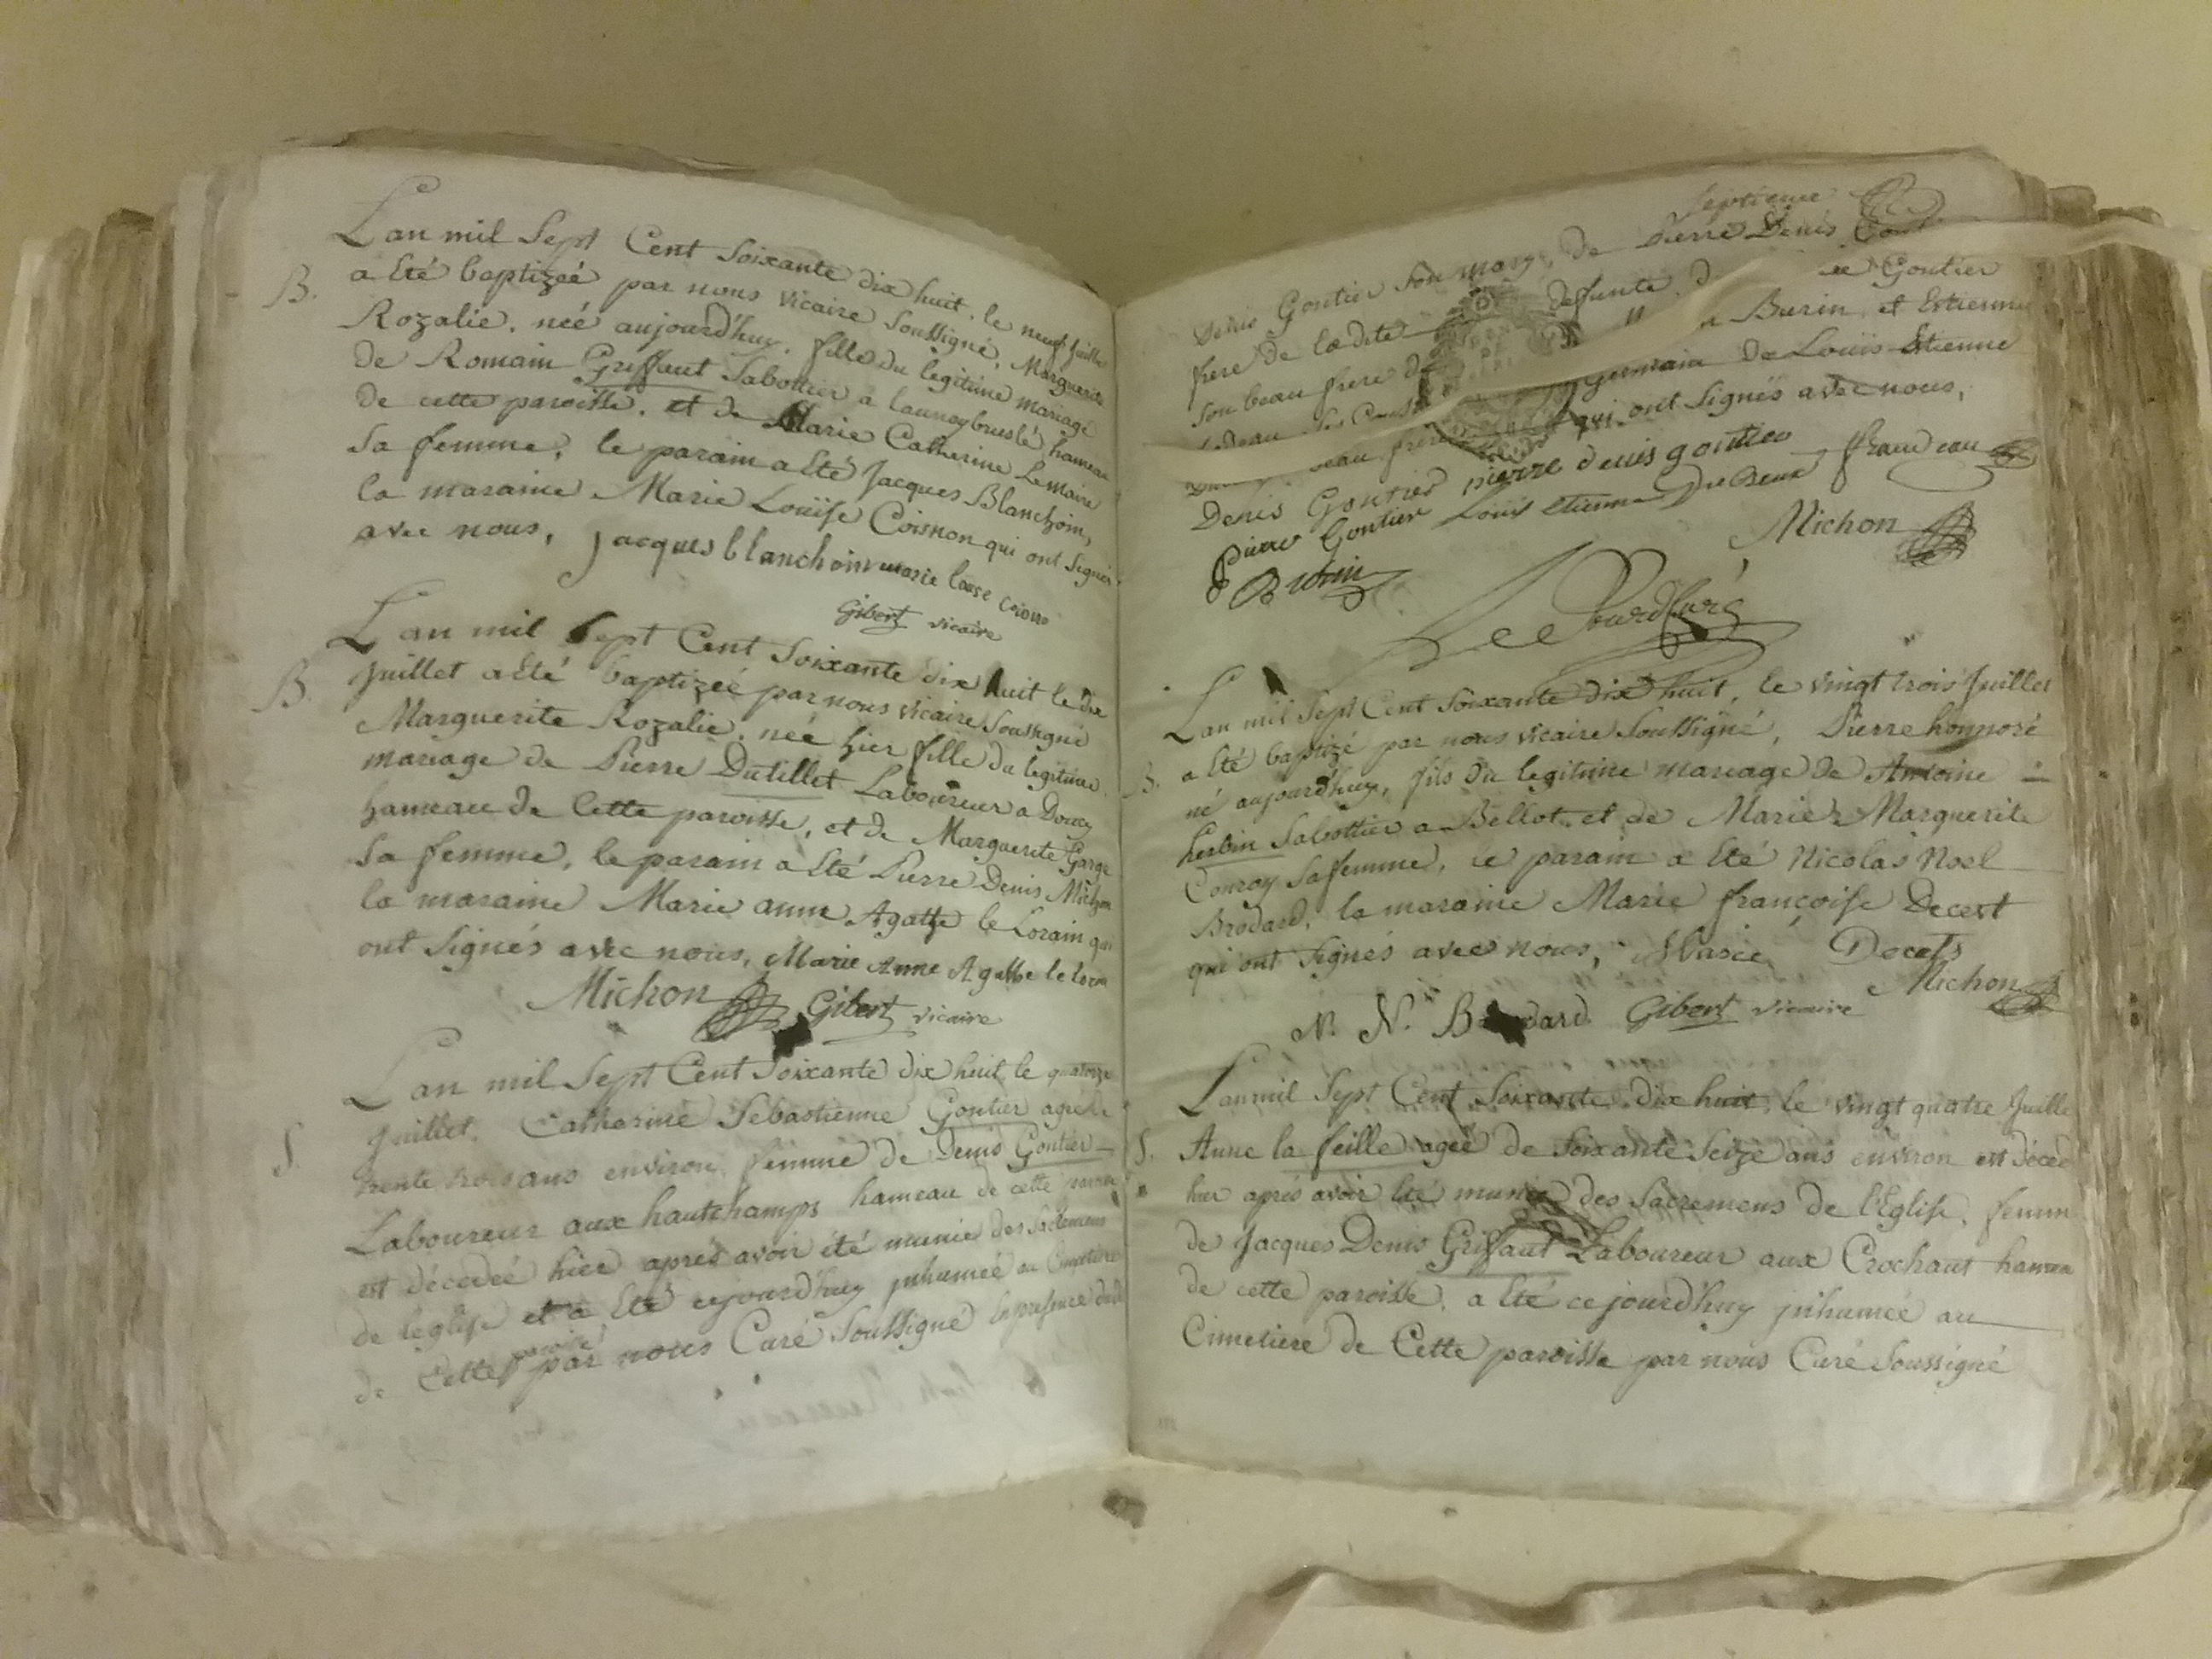 L'an mil Sept Cent Soixante dix huit, le neuf Juillet
B. a Eté baptizeé par nous vicaire Soussigné, Marguerite
Rozalie, neé aujourd'huy, fille du legitime mariage
de Romain Griffaut Sabottier a launoy bruslé hameau
de cette paroisse, et de Marie Catherine Lemaire
Sa femme, le parain a Eté Jacques Blanchoin,
la maraine Marie Louïse Coisnon qui ont Signés
avec nous, Jacques blanchoin marie louse
Gibert vicaire
L'an mil Sept Cent Soixante dix huit le dix
B. Juillet a Eté baptizeé par nous vicaire Soussigné
Marguerite Rozalie, neé hier fille du legitime
mariage de Pierre Dutillet Laboureur a Doucy
hameau de Cette paroisse, et de Marguerite Garge
Sa femme, le parain a Eté Pierre Denis Michon
la maraine Marie anne Agathe le Lorain qui
ont Signés avec nous, Marie Anne Agathe le lorain
Michon Gibert vicaire
L'an mil Sept Cent Soixante dix huit le quatorze
Juillet, Catherine Sebastienne Gontier ageé de
S. trente trois ans environ, femme de Denis Gontier
Laboureur aux hautchamps hameau de cette paroisse
est décedeé hier aprés avoir été munie des Sacremens
de leglise et a Eté cejourd'huy inhumeé au Cimetiere
de Cette paroisse par nous Curé Soussigné En presence dudit
Septieme
Denis Gontier Son mary, de Pierre Denis Gont
frere de la dite defunte, Gontier
Son beau frere Burin, et Estienne
germain de Louïs Etienne
beau frere qui ont Signés avec nous,
Denis Gontier pierre denis gontier
Pierre Gontier Louis Etienne
Burin Michon
L'an mil Sept Cent Soixante dix huit, le vingt trois Juillet
a Eté baptizé par nous vicaire Soussigné, Pierre honnoré
B. né aujourd'huy, fils du legitime mariage de Antoine
herbin Sabottier a Bellot, et de Marie Marguerite
Conroy Sa femme, le parain a Eté Nicolas Noel
Brodard, la maraine Marie françoise Decest
qui ont Signés avec nous, Marie Decets
Michon
N. N. Brodard Gibert vicaire
L'an mil Sept Cent Soixante dix huit, le vingt quatre Juillet
S. Anne la feille ageé de Soixante Seize ans environ est déced
hier aprés avoir Eté munie des Sacremens de l'Eglise, femm
de Jacques Denis Griffaut Laboureur aux Crochaut hameau
de cette paroisse, a Eté cejourd'huy inhumeé au
Cimetiere de Cette paroisse par nous Curé Soussigné